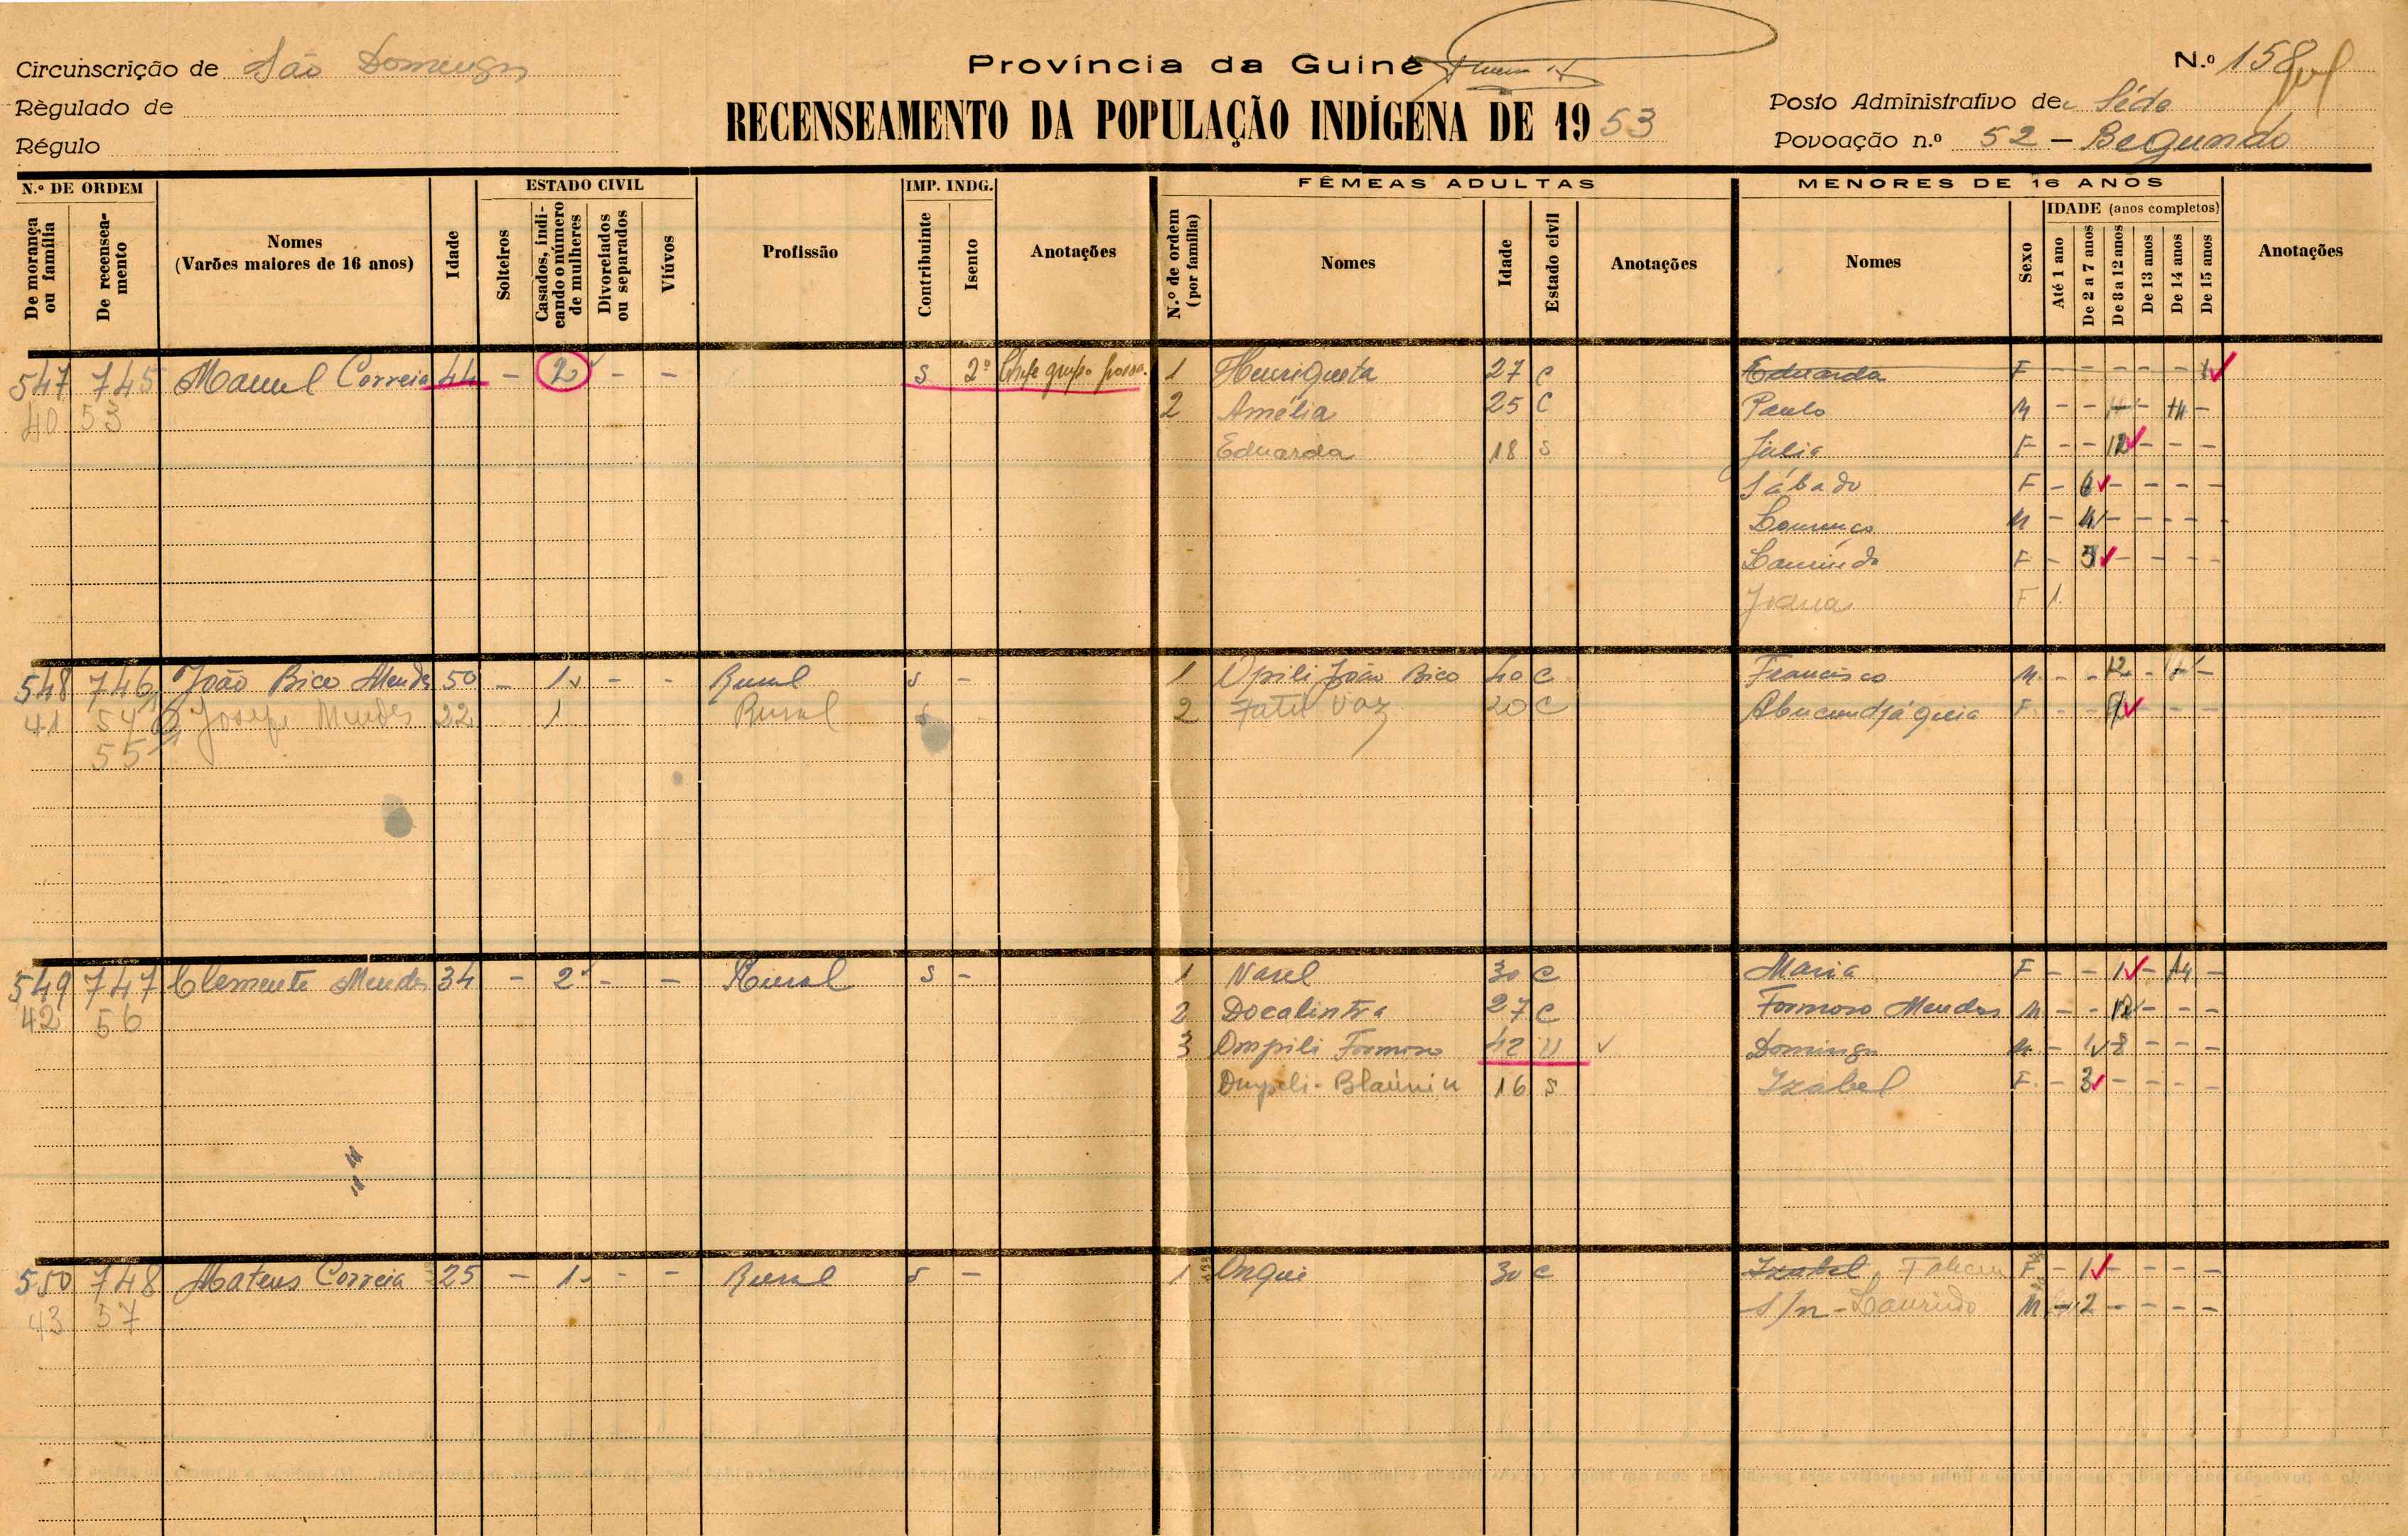 Província da Guiné
N.º 158
Circunscrição de São Domingos
Règulado de
Régulo
RECENSEAMENTO DA POPULAÇÃO INDÍGENA DE 1953
Posto Administrativo de Séde
Povoação n.º 52 - Begundo
N.º DE ORDEM ESTADO CIVIL IMP. INDG. FÊMEAS ADULTAS MENORES DE 16 ANOS
De morança ou família De recenseamento Nomes (Varões maiores de 16 anos) Idade Solteiros Casados, indicando o número de mulheres Divorciados ou separados Viúvos Profissão Contribuinte Isento Anotações N.º de ordem (por família) Nomes Idade Estado civil Anotações Nomes Sexo IDADE (anos completos) Até 1 ano De 2 a 7 anos De 8 a 12 anos De 13 anos De 14 anos De 15 anos Anotações
547 745 Manuel Correia 44 - 2 - - S 2º Chefe grupo 1 Henriqueta 27 C Eduarda F - - - - -
40 53 2 Amélia 25 C Paulo M - - - -
Eduarda 18 S Júlia F - - 12 - - -
Sábado F - 6 - - - -
Lourenço M - 4 - - - -
Laurinda F - 3 - - - -
Joana F 1
548 746 João Bico Mendes 50 - 1 - - Rural S - 1 Opili João Bico 40 C Francisco M - - 12 - -
41 54 Josefe Mendes 22 1 Rural S 2 Fatú Vaz 20 C F - - - - -
55
549 747 Clemente Mendes 34 - 2 - - Rural S - 1 Nasel 30 C Maria F - - - 14 -
42 56 2 Docalintra 27 C Formoso Mendes M - - 12 - - -
3 Ompili Formoso 42 V Domingos M - 8 - - -
Ompili - Blaúnin 16 S Izabel F - 3 - - - -
550 748 Mateus Correia 25 - 1 - - Rural S - 1 Ongué 30 C Izabel F - 1 - - - -
43 57 S/n - Laurindo M - 2 - - - -